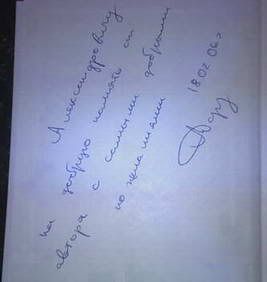 Александровичу
на добрую память от
автора с самыми добрыми
пожеланиями
18.02.06г